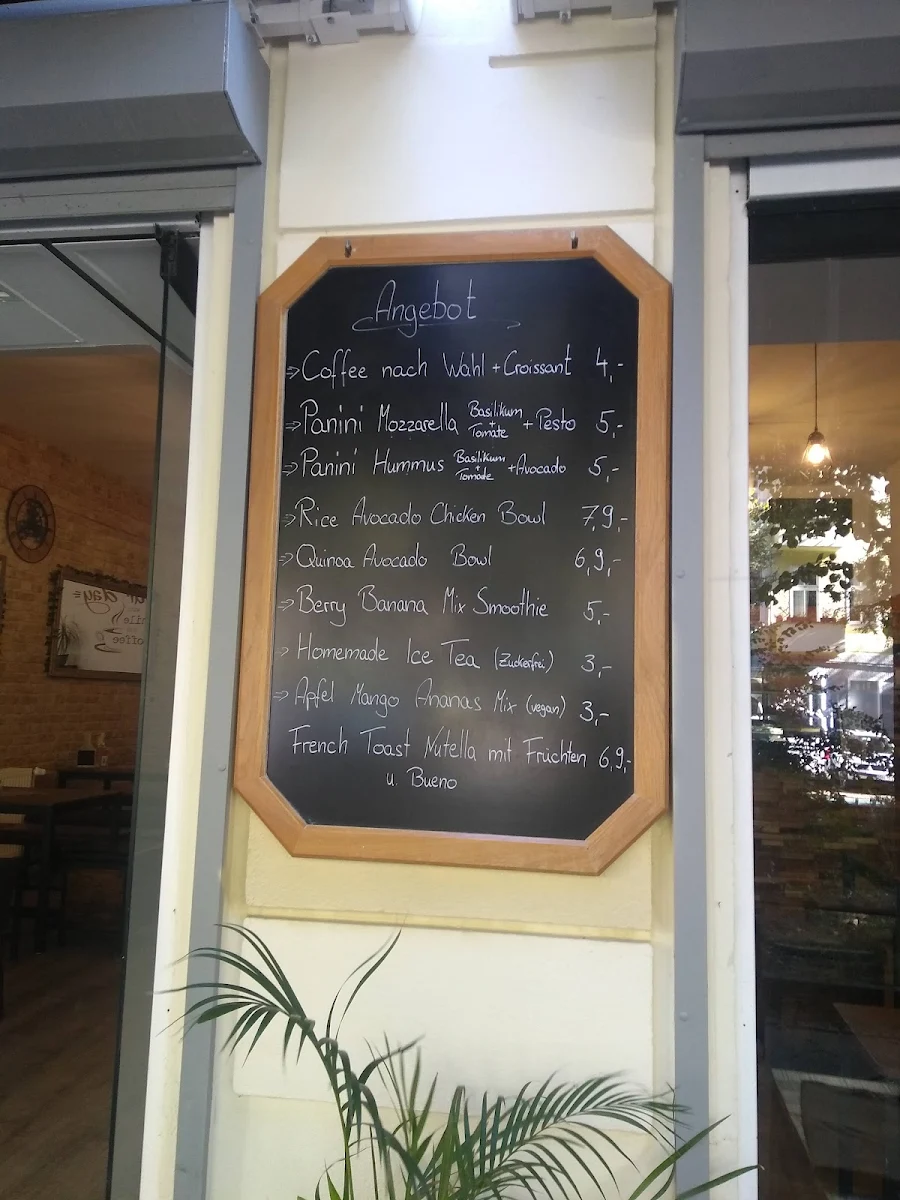 Angebot
⇒ Coffee nach Wahl + Croissant 4,-
⇒ Panini Mozzarella Basilikum + Tomate + Pesto 5,-
⇒ Panini Hummus Basilikum + Tomate + Avocado 5,-
⇒ Rice Avocado Chicken Bowl 7,9,-
⇒ Quinoa Avocado Bowl 6,9,-
⇒ Berry Banana Mix Smoothie 5,-
⇒ Homemade Ice Tea (Zuckerfrei) 3,-
⇒ Apfel Mango Ananas Mix (vegan) 3,-
French Toast Nutella mit Früchten 6,9,-
u. Bueno